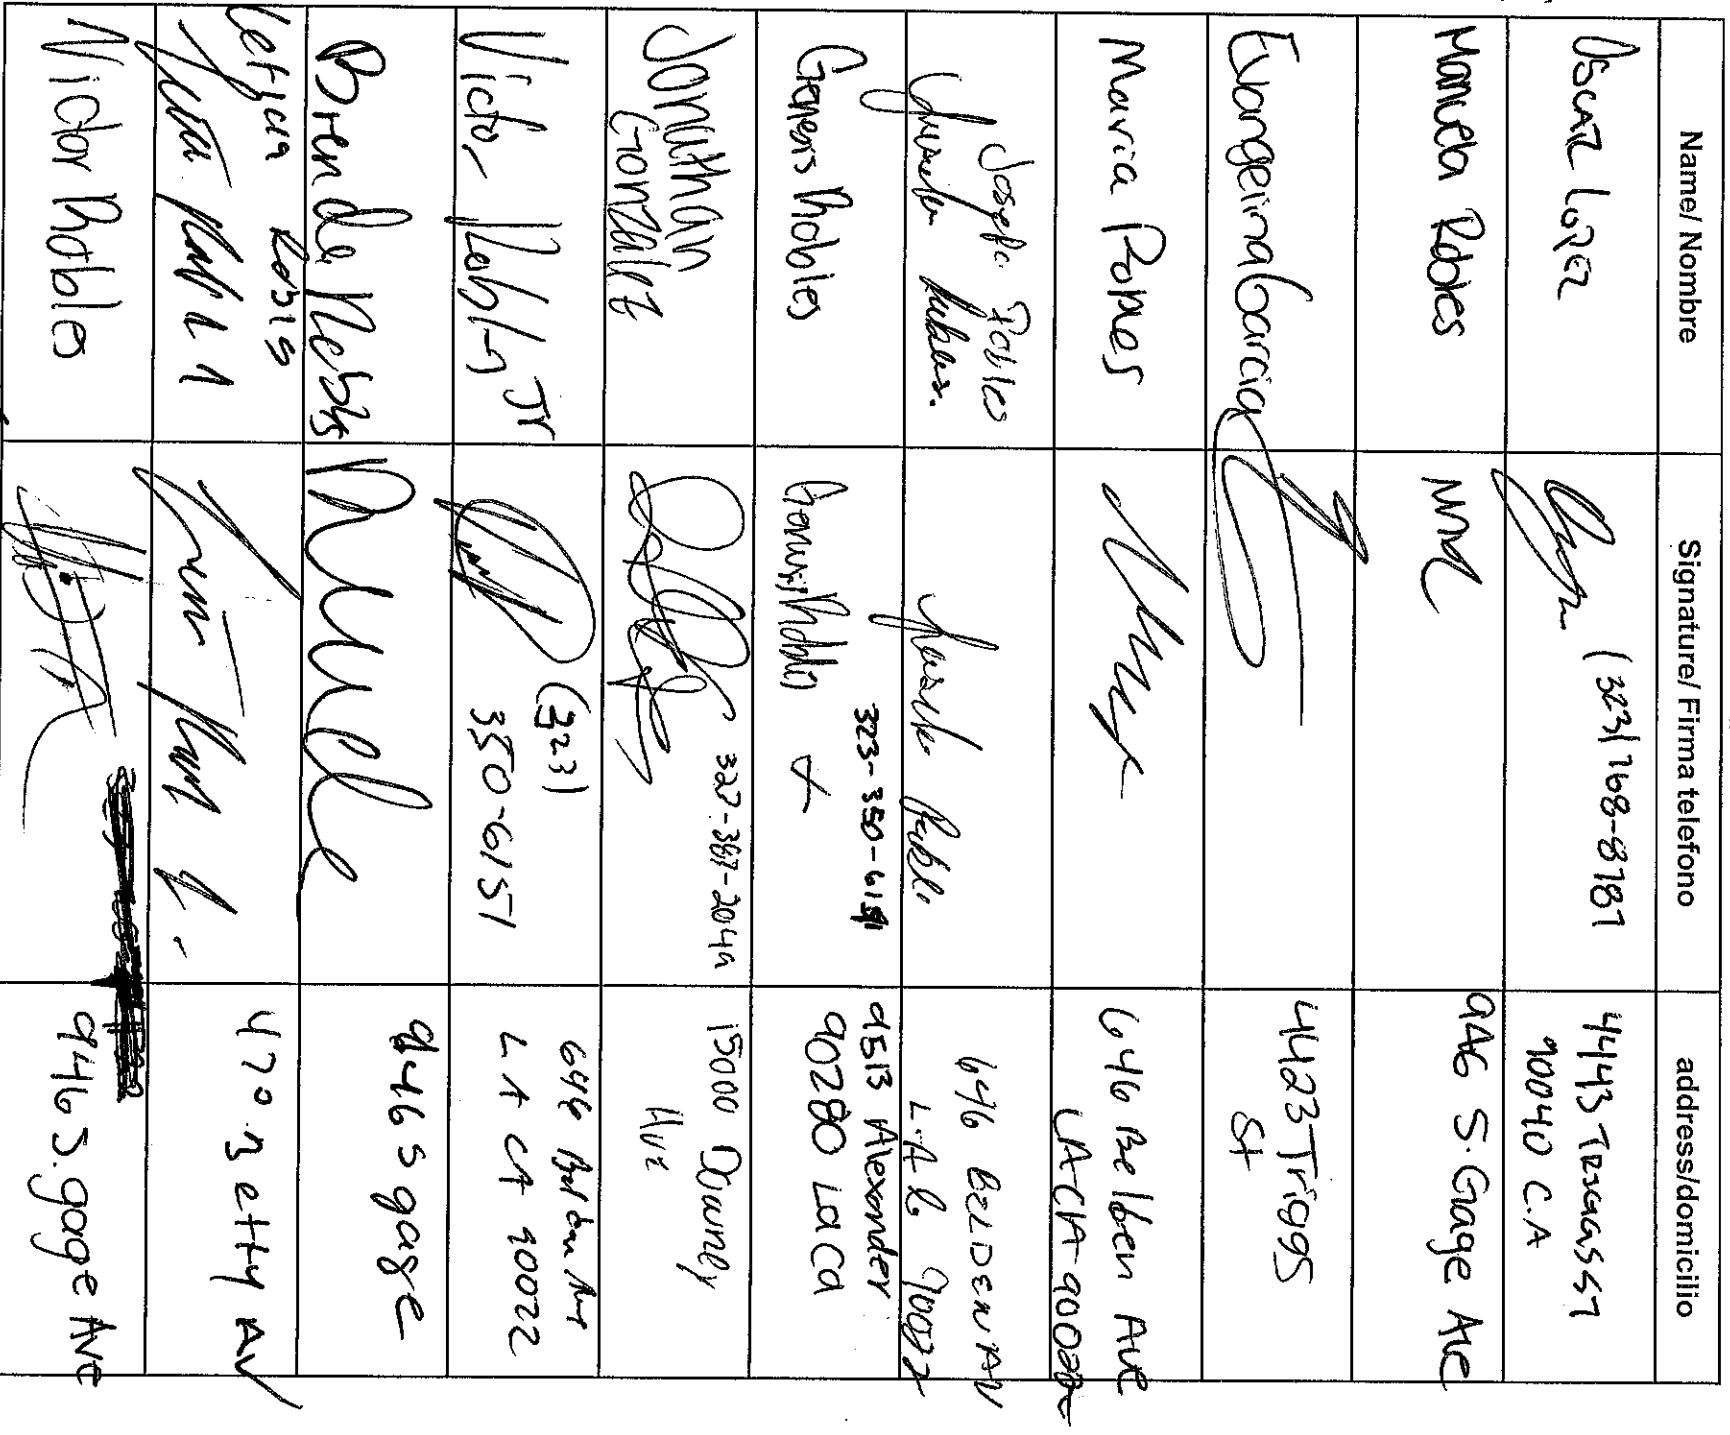 Name/ Nombre
Signature/ Firma telefono
address/domicilio
OSCAR LOPEZ
(323)768-8787
4443 TRIGGS ST
90040 C.A
Manuela Robles
946 S. Gage Ave
Evangelina Garcia
4423 Triggs
St
Maria Robles
646 Belden Ave
LA CA 90022
Robles
646 BELDEN AV
L.A 90022
Genesis Robles
323-350-6151
9513 Alexander
90280 La Ca
Jonathan
Gonzalez
15000 Downey
Ave
Victor Robles Jr
(323)
350-6151
646 Belden Ave
LA CA 90022
Brenda Robles
946 S gage
Leticia Robles
470 Betty AV
Victor Robles
946 S. gage Ave